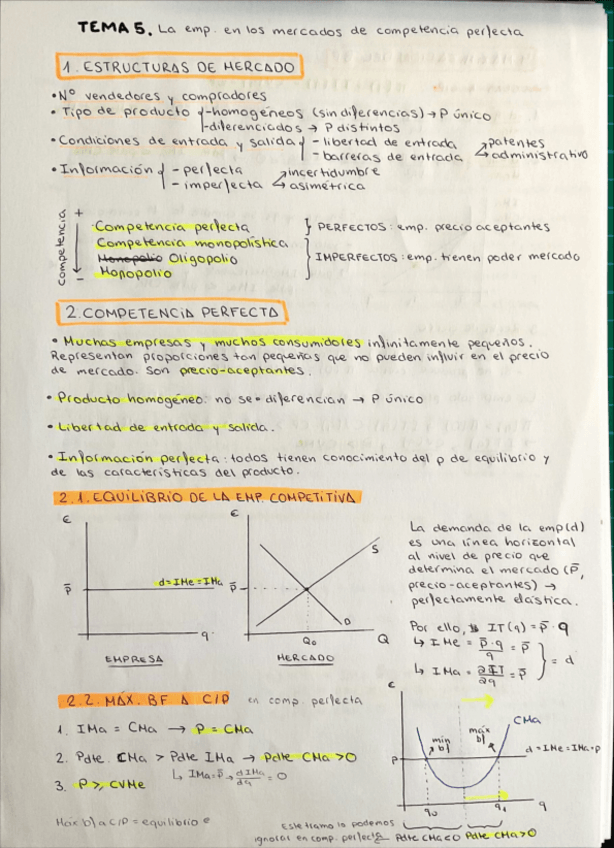 TEMA 5. La emp. en los mercados de competencia perfecta
1. ESTRUCTURAS DE MERCADO
• Nº vendedores y compradores
• Tipo de producto -homogéneos (sin diferencias) → P único
-diferenciados → P distintos
• Condiciones de entrada y salida - libertad de entrada
- barreras de entrada patentes
administrativo
• Información - perfecta
- imperfecta incertidumbre
asimétrica
Competencia + -
Competencia perfecta } PERFECTOS: emp. precio aceptantes
Competencia monopolística
Monopolio Oligopolio } IMPERFECTOS: emp. tienen poder mercado
Monopolio
2. COMPETENCIA PERFECTA
• Muchas empresas y muchos consumidores infinitamente pequeños.
Representan proporciones tan pequeñas que no pueden influir en el precio
de mercado. Son precio-aceptantes.
• Producto homogéneo: no se diferencian → P único
• Libertad de entrada y salida.
• Información perfecta: todos tienen conocimiento del p de equilibrio y
de las características del producto.
2.1. EQUILIBRIO DE LA EMP. COMPETITIVA
€
p̄
d = IMe = IMa
q
EMPRESA
€
p̄
S
D
Q₀
Q
MERCADO
La demanda de la emp (d)
es una línea horizontal
al nivel de precio que
determina el mercado (p̄,
precio-aceptantes) →
perfectamente elástica.
Por ello, IT(q) = p̄ · q
↳ IMe = p̄·q/q = p̄
↳ IMa = ∂IT/∂q = p̄ } = d
2.2. MÁX. BF A C/P en comp. perfecta
1. IMa = CMa → P = CMa
2. Pdte. CMa > Pdte IMa → Pdte CMa > 0
↳ IMa = p̄ → dIMa/dq = 0
3. P ≥ CVMe
Máx b/ a C/P = equilibrio e
€
CMa
mín b/
máx b/
d = IMe = IMa = p
P
q₀
q₁
q
Este tramo lo podemos
ignorar en comp. perfecta Pdte CMa < 0 Pdte CMa > 0